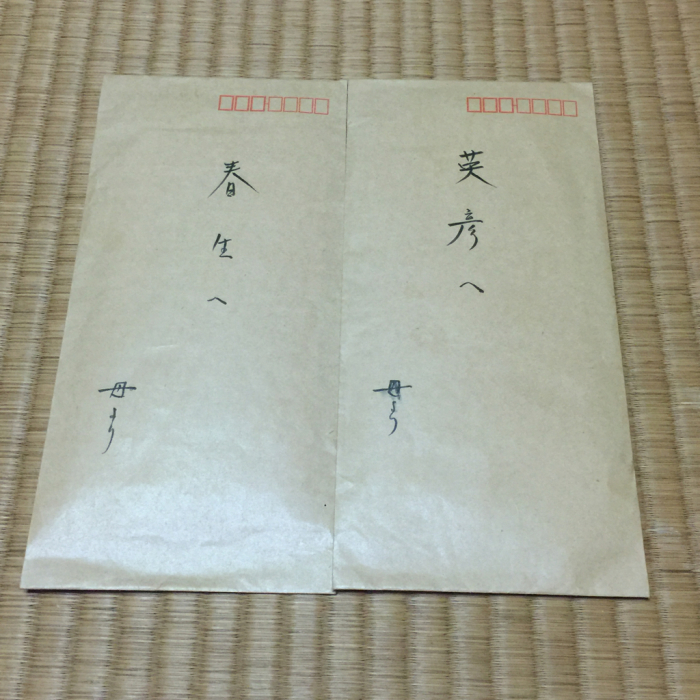 英彦へ
母より
春生へ
母より